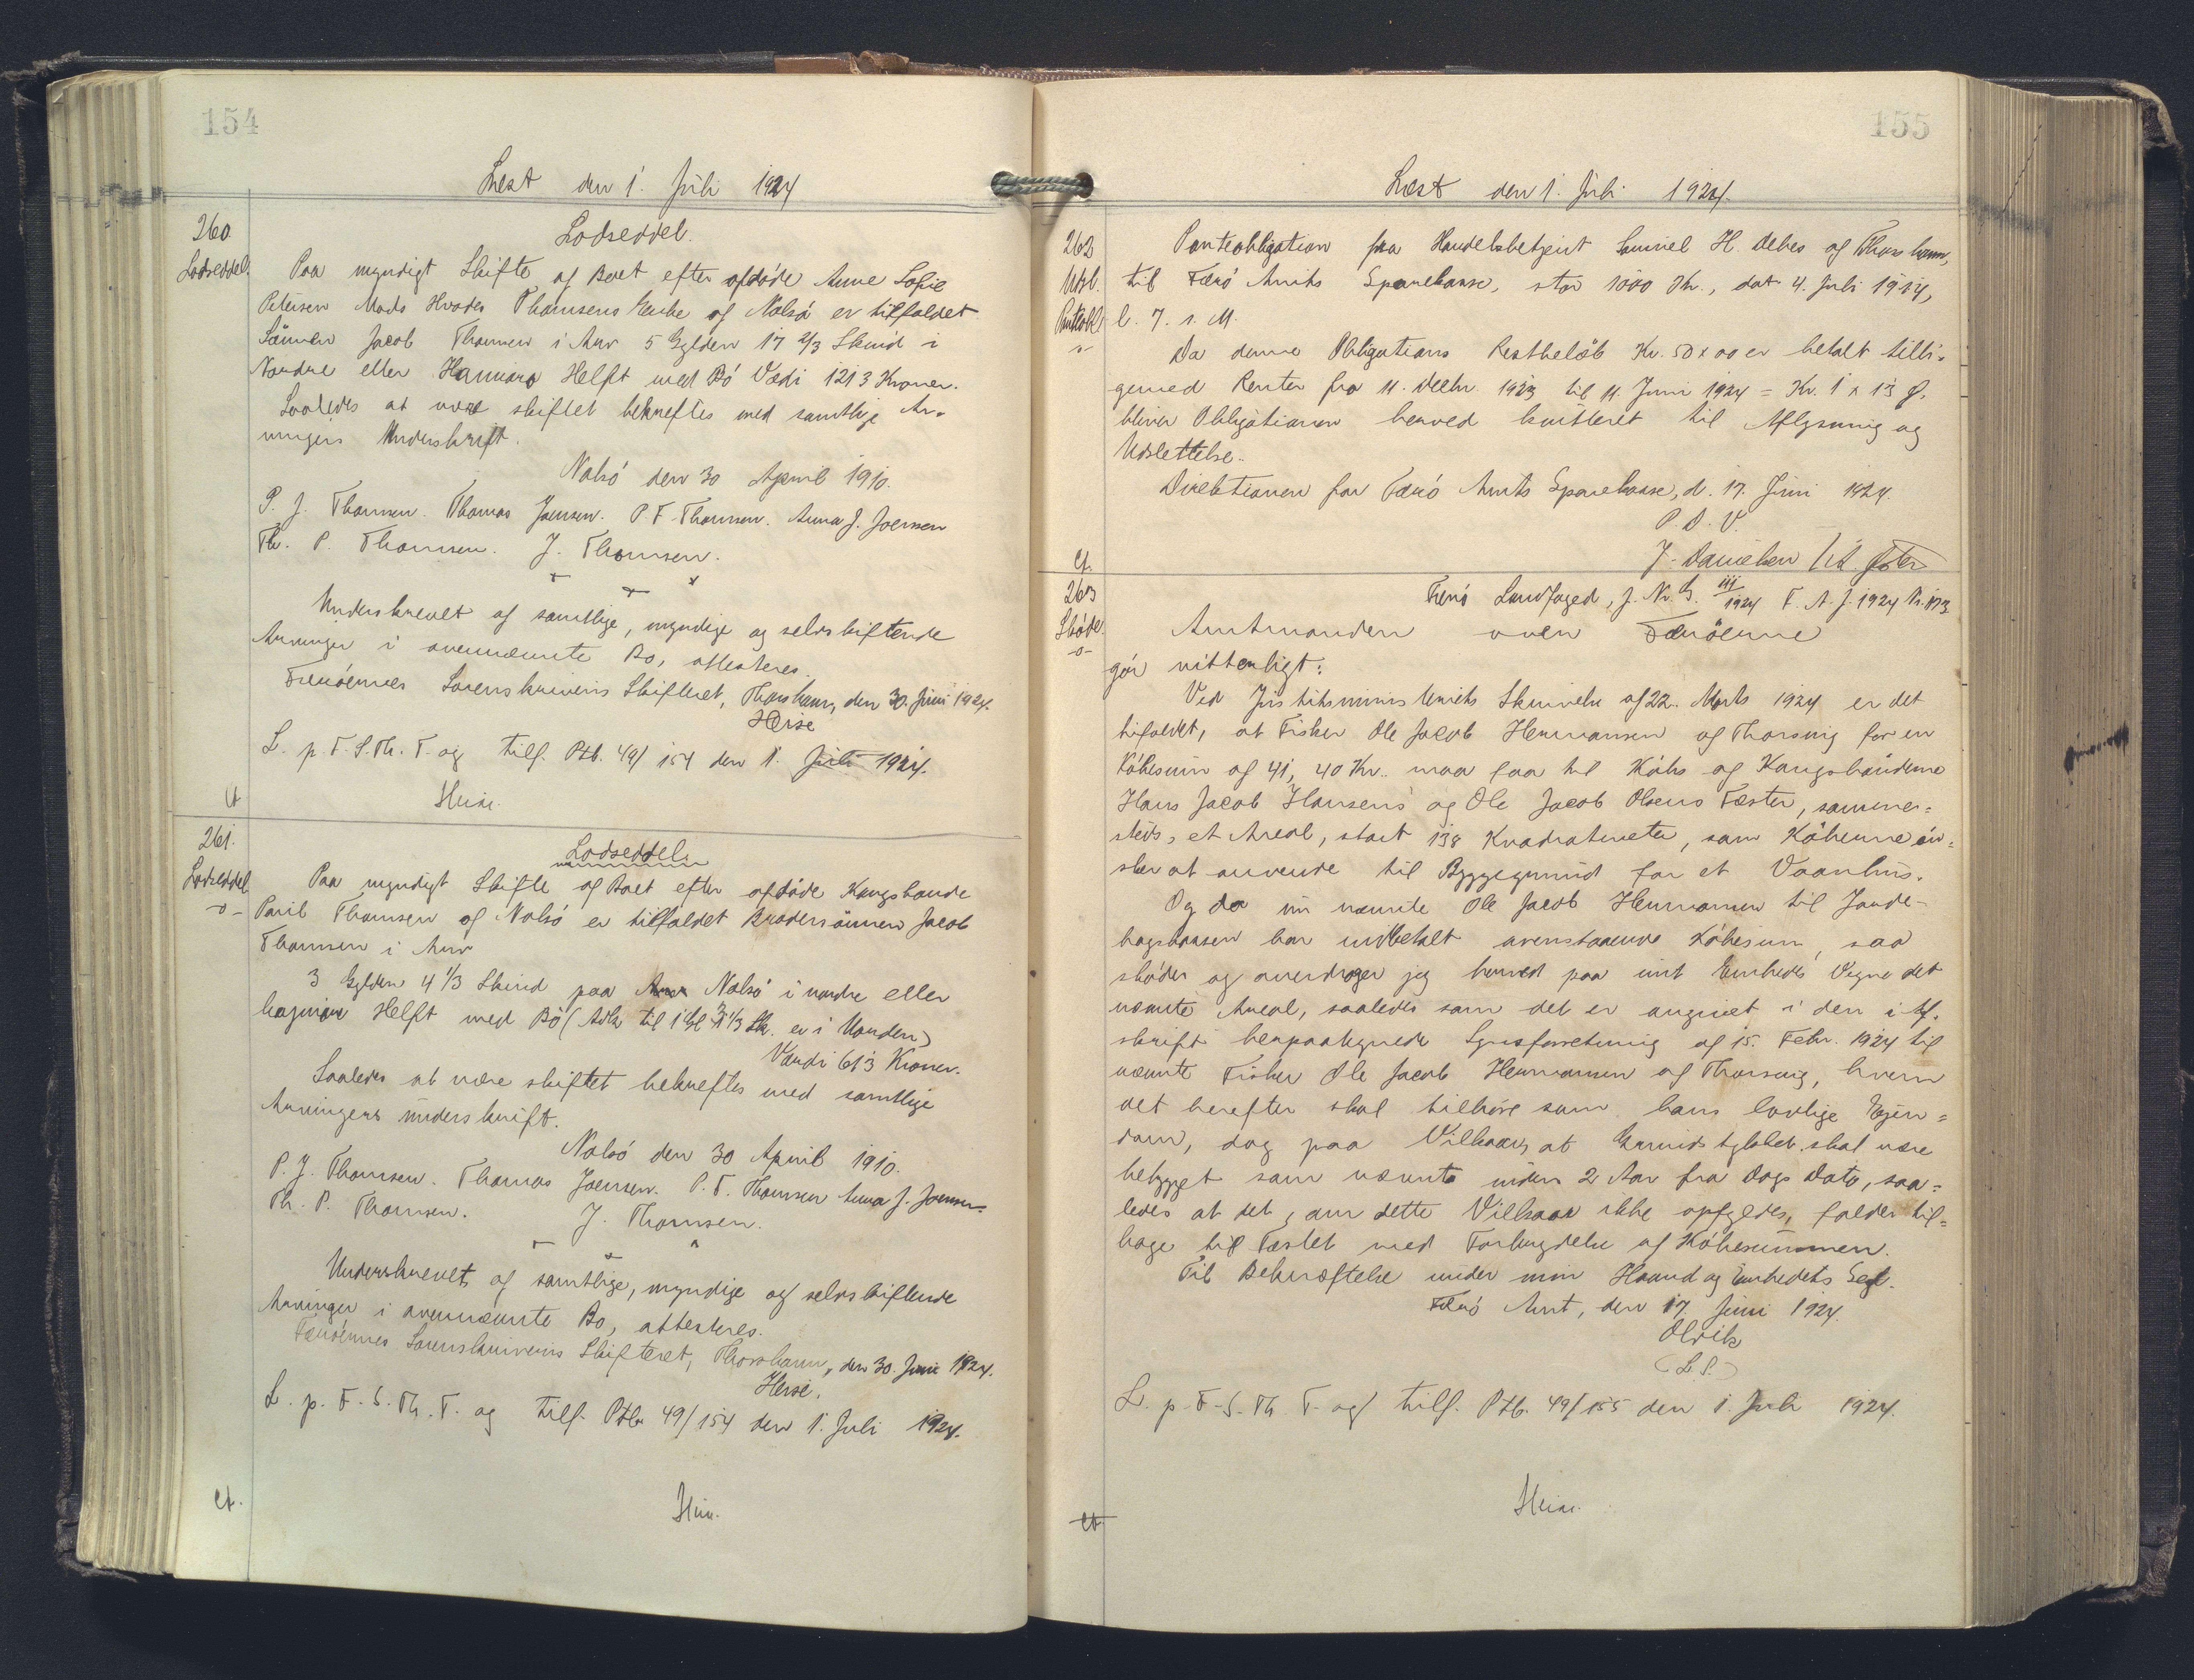 154
Læst den 1. Juli 1924
260
Lodseddel.
Lodseddel.
Paa myndigt Skifte af Boet efter afdöde Anne Sofie
Petersen Mads Hvodes Thomsens Enke af Nolsö er tilfaldet
Sönnen Jacob Thomsen i Arv 5 Gylden 17 2/3 Skind i
Nordre eller Hannara Helft med Bö Værdi 1213 Kroner.
Saaledes at være skiftet bekræftes med samtlige Ar-
vingers Underskrift.
Nolsö den 30 April 1910.
P. J. Thomsen. Thomas Joensen. P. F. Thomsen. Anna J. Joensen
Th. P. Thomsen. J. Thomsen.
Underskrevet af samtlige, myndige og selvskiftende
Arvinger i ovennævnte Bo, attesteres.
Færöernes Sorenskriveris Skifteret, Thorshavn, den 30. Juni 1924.
Heise
L. p. F. S. Th. T. og tilf. Ptb. 49/154 den 1. Juli 1924.
Ct
Heise.
261.
Lodseddel
-o-
Lodseddel
Paa myndigt Skifte af Boet efter afdöde Kongsbonde
Poul Thomsen af Nolsö er tilfaldet Brodersönnen Jacob
Thomsen i Arv
3 Gylden 4 1/3 Skind paa Nolsö i nordre eller
Helft med Bö (Adk til 1 Gl 3 1/3 Sk. er i Handen)
Værdi 613 Kroner.
Saaledes at være skiftet bekræftes med samtlige
Arvingers underskrift.
Nolsö den 30 April 1910.
P. J. Thomsen. Thomas Joensen. P. F. Thomsen Anna J. Joensen.
Th. P. Thomsen. J. Thomsen.
Underskrevet af samtlige, myndige og selvskiftende
Arvinger i ovennævnte Bo, attesteres.
Færöernes Sorenskriveris Skifteret, Thorshavn, den 30. Juni 1924.
Heise.
L. p. F. S. Th. T. og tilf. Ptb 49/154 den 1. Juli 1924.
Ct.
Heise.
155
Læst den 1. Juli 1924.
262
Udsl.
Panteobl.
-o-
Panteobligation fra Handelsbetjent Samuel H. Debes af Thorshavn,
til Færö Amts Sparekasse, stor 1000 Kr., dat 4. Juli 1914,
l. 7. s. M.
Da denne Obligations Restbelöb Kr. 50 x 00 er betalt tilli-
gemed Renter fra 11. Decbr. 1923 til 11. Juni 1924 = Kr. 1 x 13 Ø.
bliver Obligationen herved kvitteret til Aflysning og
Udslettelse.
Direktionen for Færö Amts Sparekasse, d. 17. Juni 1924.
P. D. V.
J. Danielsen
Ct.
263
Sköde.
-o-
Færö Landfoged, J. Nr. 1924 F. A. J. 1924 Nr.
Amtmanden over Færöerne
gör vitterligt:
Ved Justitsministeriets Skrivelse af 22. Marts 1924 er det
tilladt, at Fisker Ole Jacob Hermansen af Thorsvig for en
Köbesum af 41, 40 Kr. maa faa til Köbs af Kongsbönderne
Hans Jacob Hansens og Ole Jacob Olsens Fæster, sammes-
steds, et Areal, stort 138 Kvadratmeter, som Köberne ön-
sker at anvende til Byggegrund for et Vaanhus.
Og da nu nævnte Ole Jacob Hermansen til Jorde-
bogskassen har indbetalt ovenstaaende Köbesum, saa
sköder og overdrager jeg herved paa mit Embeds Vegne det
nævnte Areal, saaledes som det er angivet i den i Af-
skrift herpaategnede Synsforretning af 15. Febr. 1924 til
nævnte Fisker Ole Jacob Hermansen af Thorsvig, hvem
det herefter skal tilhöre som hans lovlige Ejen-
dom, dog paa Vilkaar, at Grundstykket skal være
bebygget som nævnt inden 2 Aar fra Dags Dato, saa-
ledes at det, om dette Vilkaar ikke opfyldes, falder til-
bage til Fæstet med Fortabelse af Köbesummen.
Til Bekræftelse under min Haand og Embedets Segl.
Færö Amt, den 17. Juni 1924.
Olrik
(L.S.)
L. p. F. S. Th T. og tilf. Ptb. 49/155 den 1. Juli 1924.
Ct
Heise.